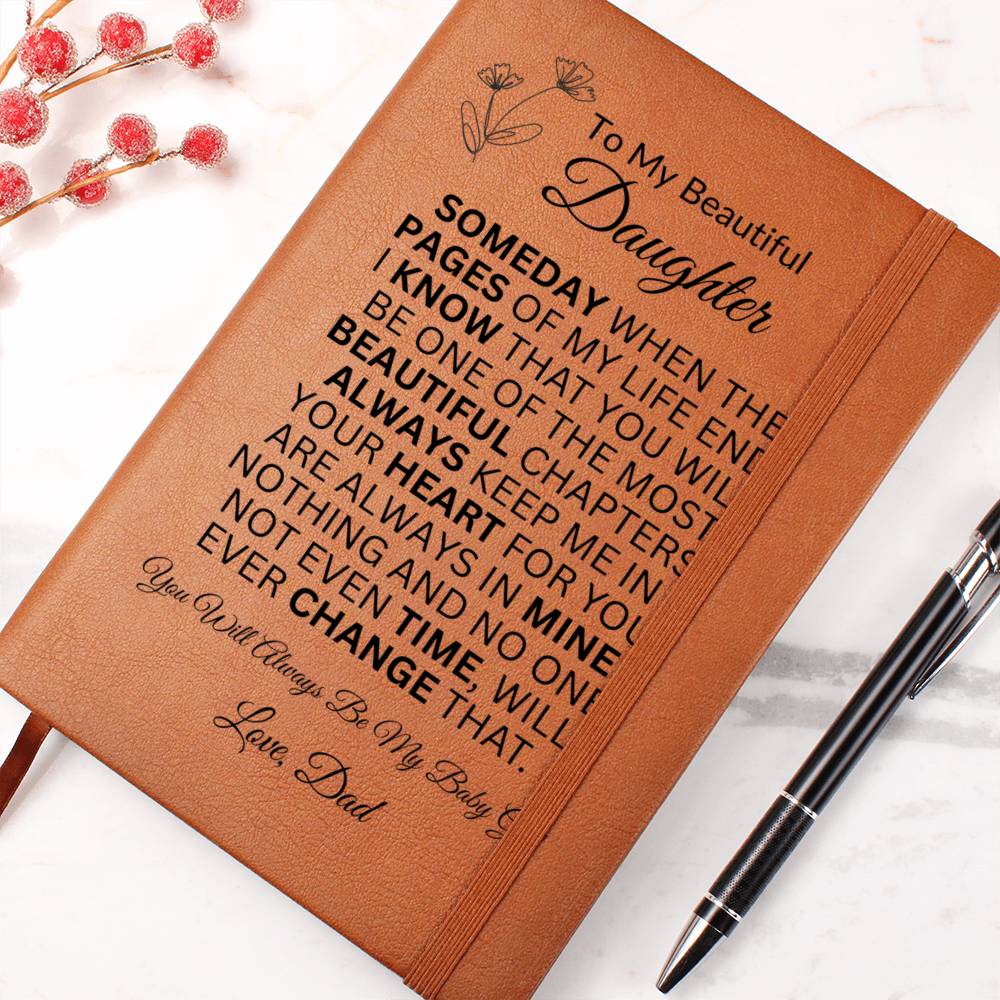 To My Beautiful
Daughter
SOMEDAY WHEN THE
PAGES OF MY LIFE END
I KNOW THAT YOU WILL
BE ONE OF THE MOST
BEAUTIFUL CHAPTERS
ALWAYS KEEP ME IN
YOUR HEART FOR YOU
ARE ALWAYS IN MINE
NOTHING AND NO ONE
NOT EVEN TIME, WILL
EVER CHANGE THAT.
You Will Always Be My Baby
Love, Dad